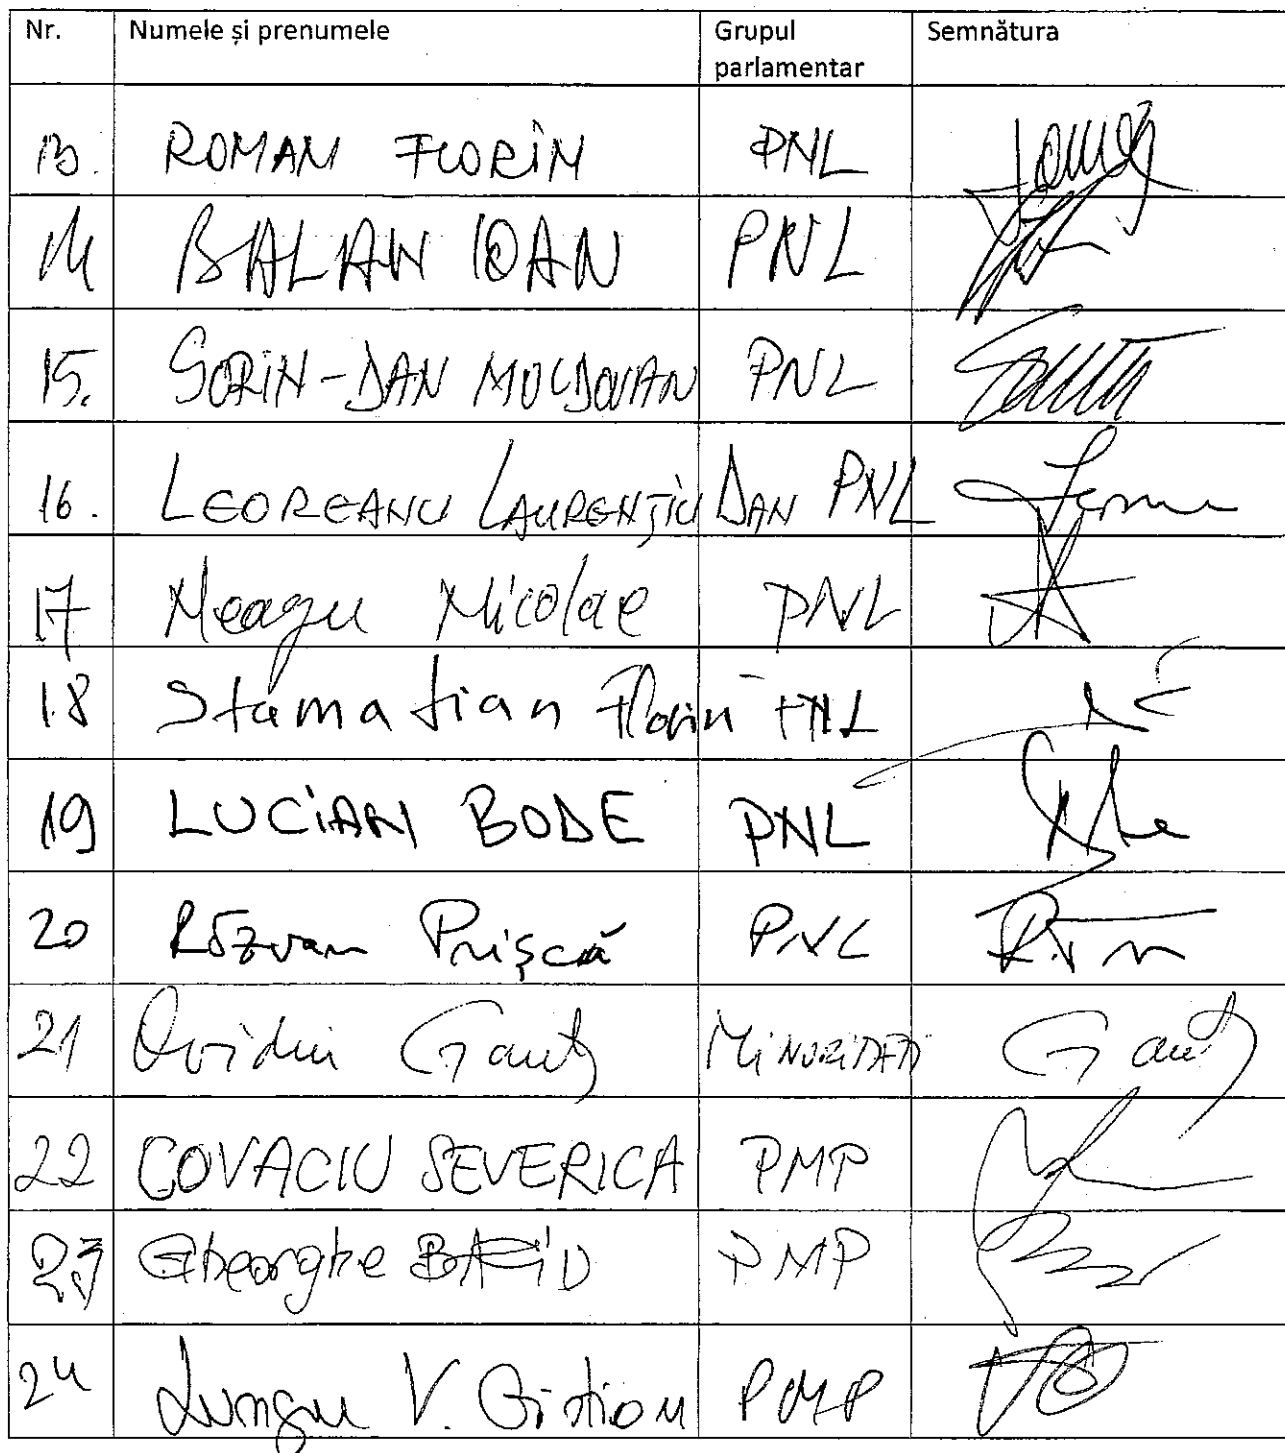 Nr. Numele și prenumele Grupul parlamentar Semnătura
13. ROMAN FLORIN PNL
14 BALAN IOAN PNL
15. SORIN-DAN MOLDOVAN PNL
16. LEOREANU LAURENȚIU DAN PNL
17 Neagu Nicolae PNL
18 Stamatian Florin PNL
19 LUCIAN BODE PNL
20 Răzvan Prișcă PNL
21 Ovidiu Ganț MINORITĂȚI Ganț
22 COVACIU SEVERICA PMP
23 Gheorghe PMP
24 Lungu V. PMP